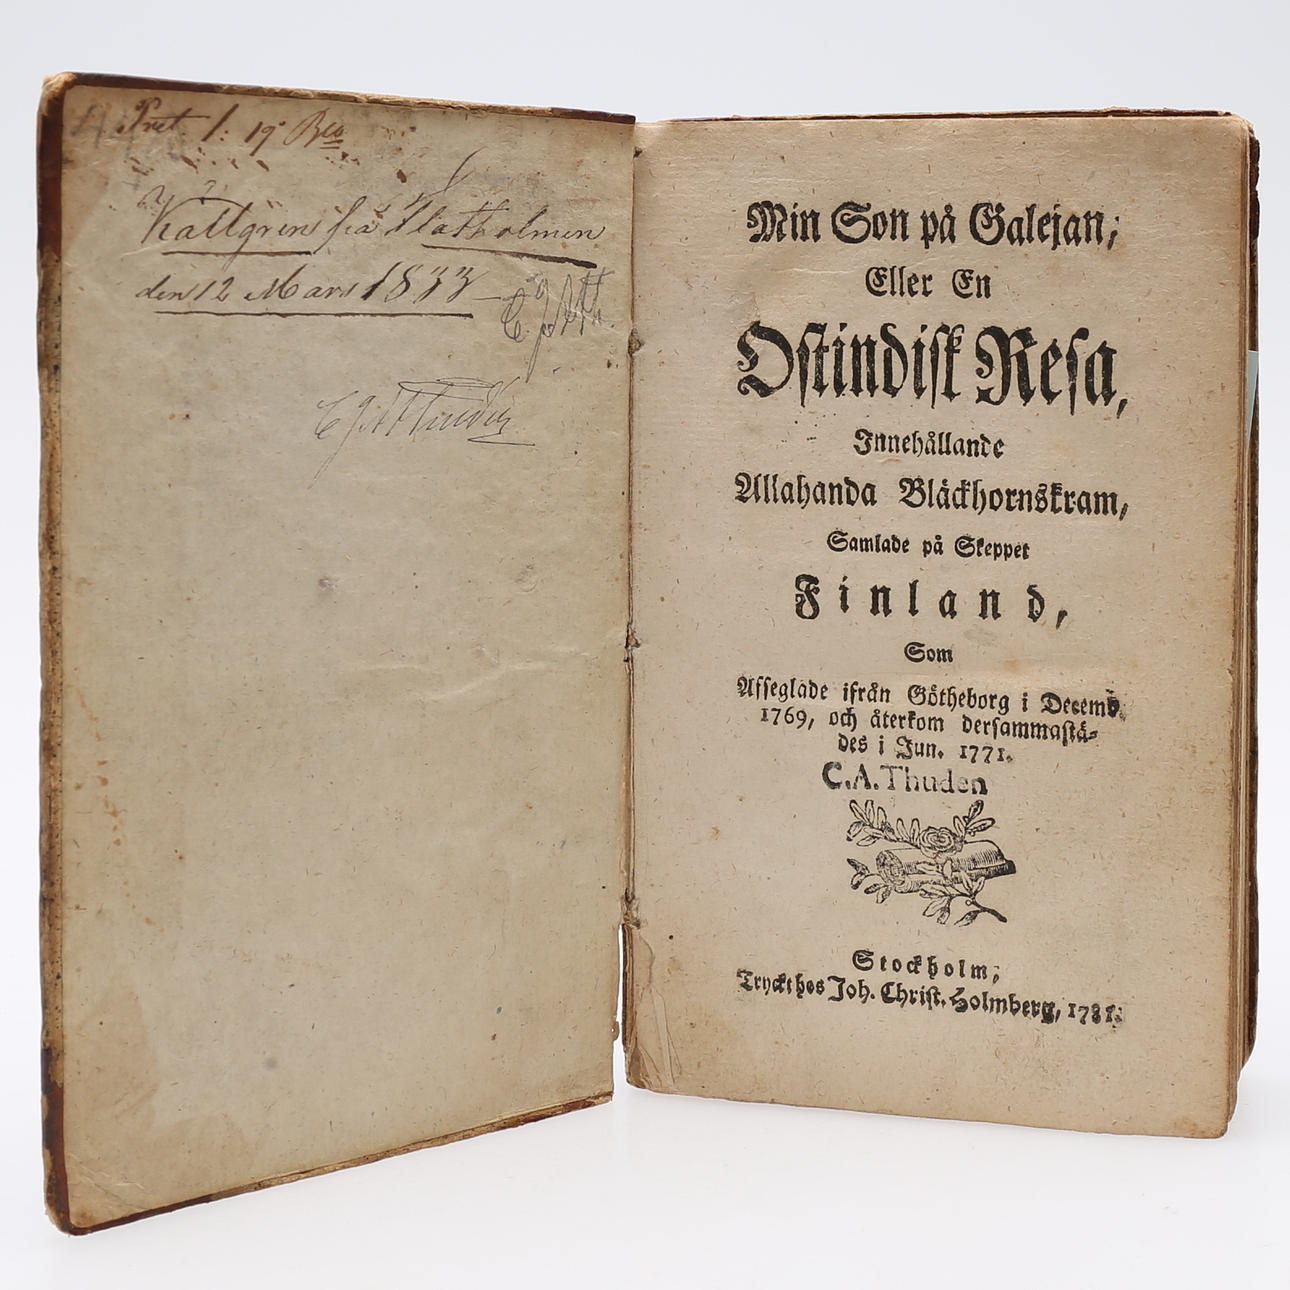 Pret. 1: 19 Bco
Källgren frå Flatholmen
den 12 Mars 1833
Min Son på Galejan;
Eller En
Ostindisk Resa,
Innehållande
Allahanda Bläckhornskram,
Samlade på Skeppet
Finland,
Som
Afseglade ifrån Götheborg i Decemb.
1769, och återkom dersammastä-
des i Jun. 1771.
C.A.Thuden
Stockholm,
Tryckt hos Joh. Christ. Holmberg, 1781.